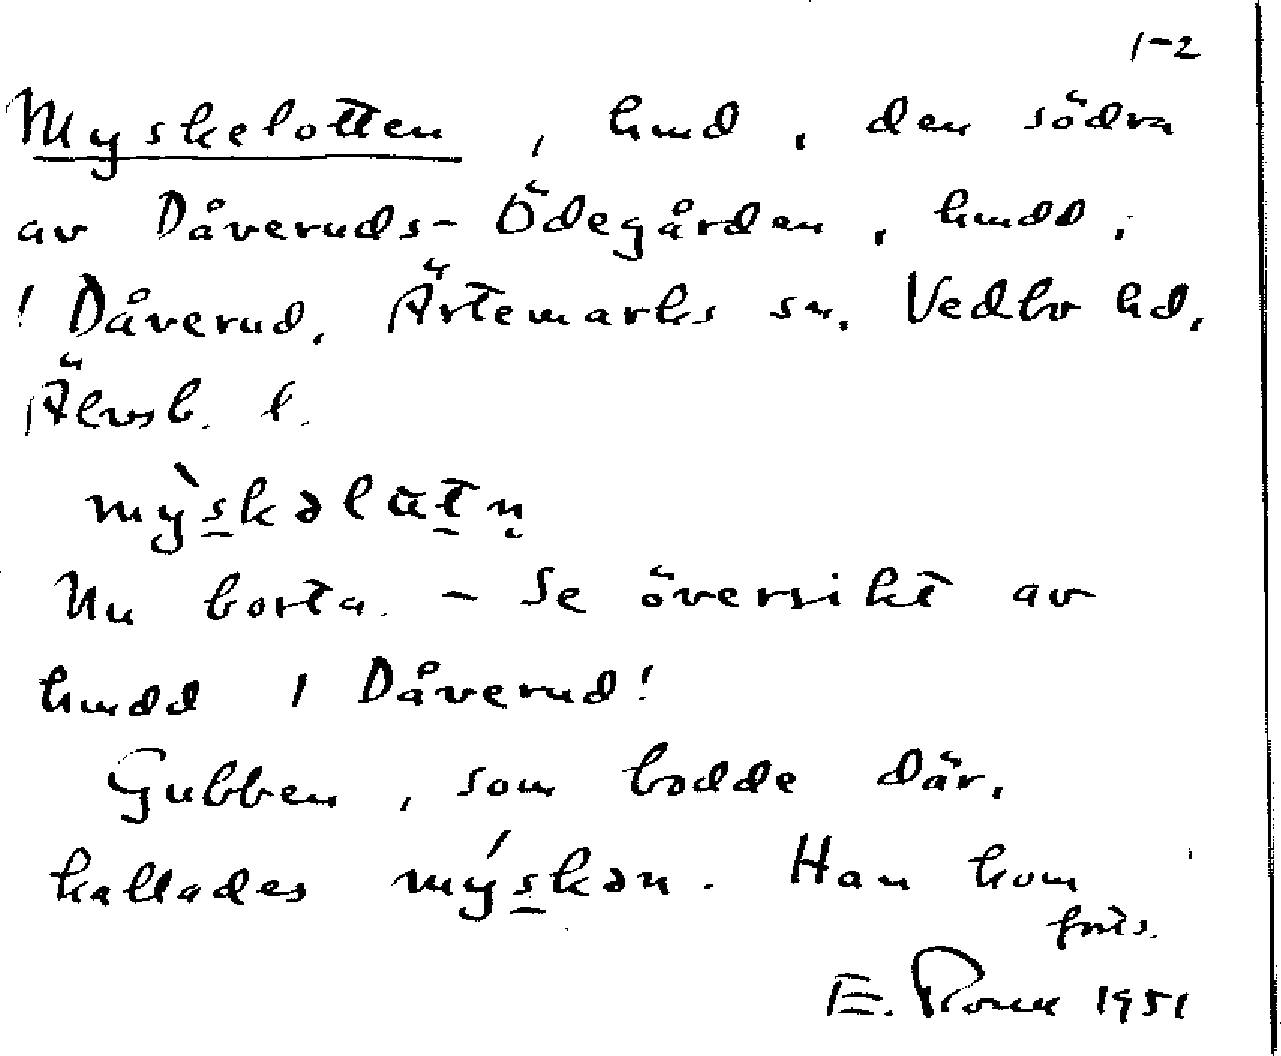 1-2
Myskelotten, hmd, den södra
av Dåveruds-Ödegården, hmdd,
i Dåverud, Ärtemarks sn. Vedbo hd,
Älvsb. l.
mỳskəlɑtn̥
Nu borta. - Se översikt av
hmdd i Dåverud!
Gubben, som bodde där,
kallades mýskən. Han kom
forts.
E. 1951